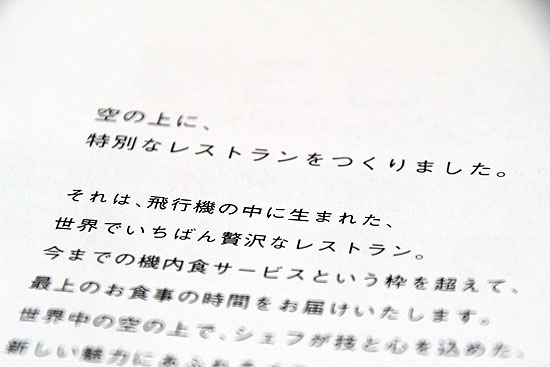 空の上に、
特別なレストランをつくりました。
それは、飛行機の中に生まれた、
世界でいちばん贅沢なレストラン。
今までの機内食サービスという枠を超えて、
最上のお食事の時間をお届けいたします。
世界中の空の上で、シェフが技と心を込めた、
新しい魅力にあふれる